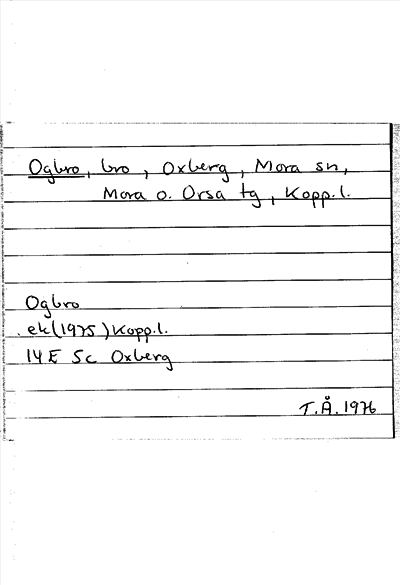 Ogbro, bro, Oxberg, Mora sn,
Mora o. Orsa tg, Kopp.l.
Ogbro
ek(1975)Kopp.l.
14E 5c Oxberg
T.Å.1976